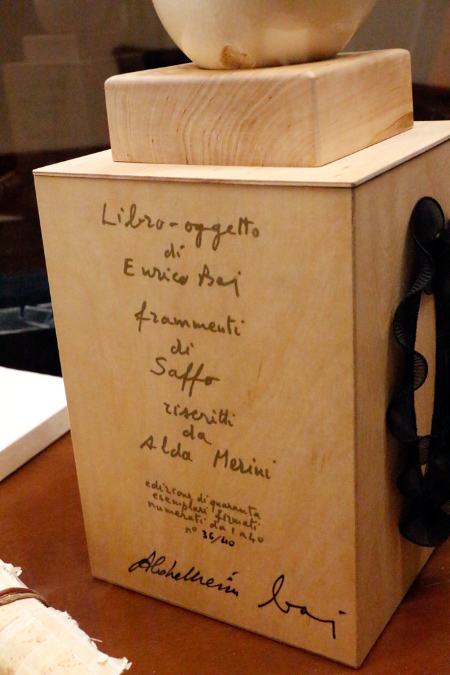 Libro-oggetto
di
Enrico Baj
frammenti
di
Saffo
riscritti
da
Alda Merini
edizione di quaranta
esemplari firmati
numerati da 1 a 40
n° 36/40
baj